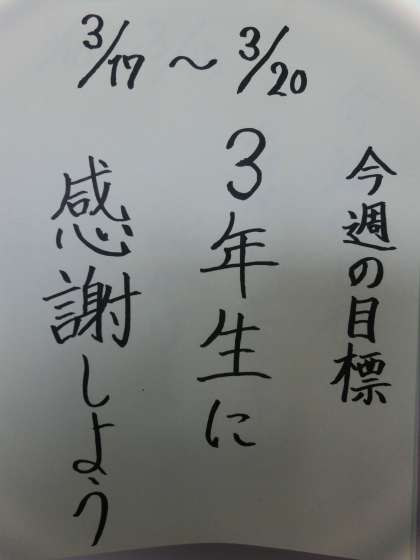 3/17～3/20
今週の目標
3年生に
感謝しよう